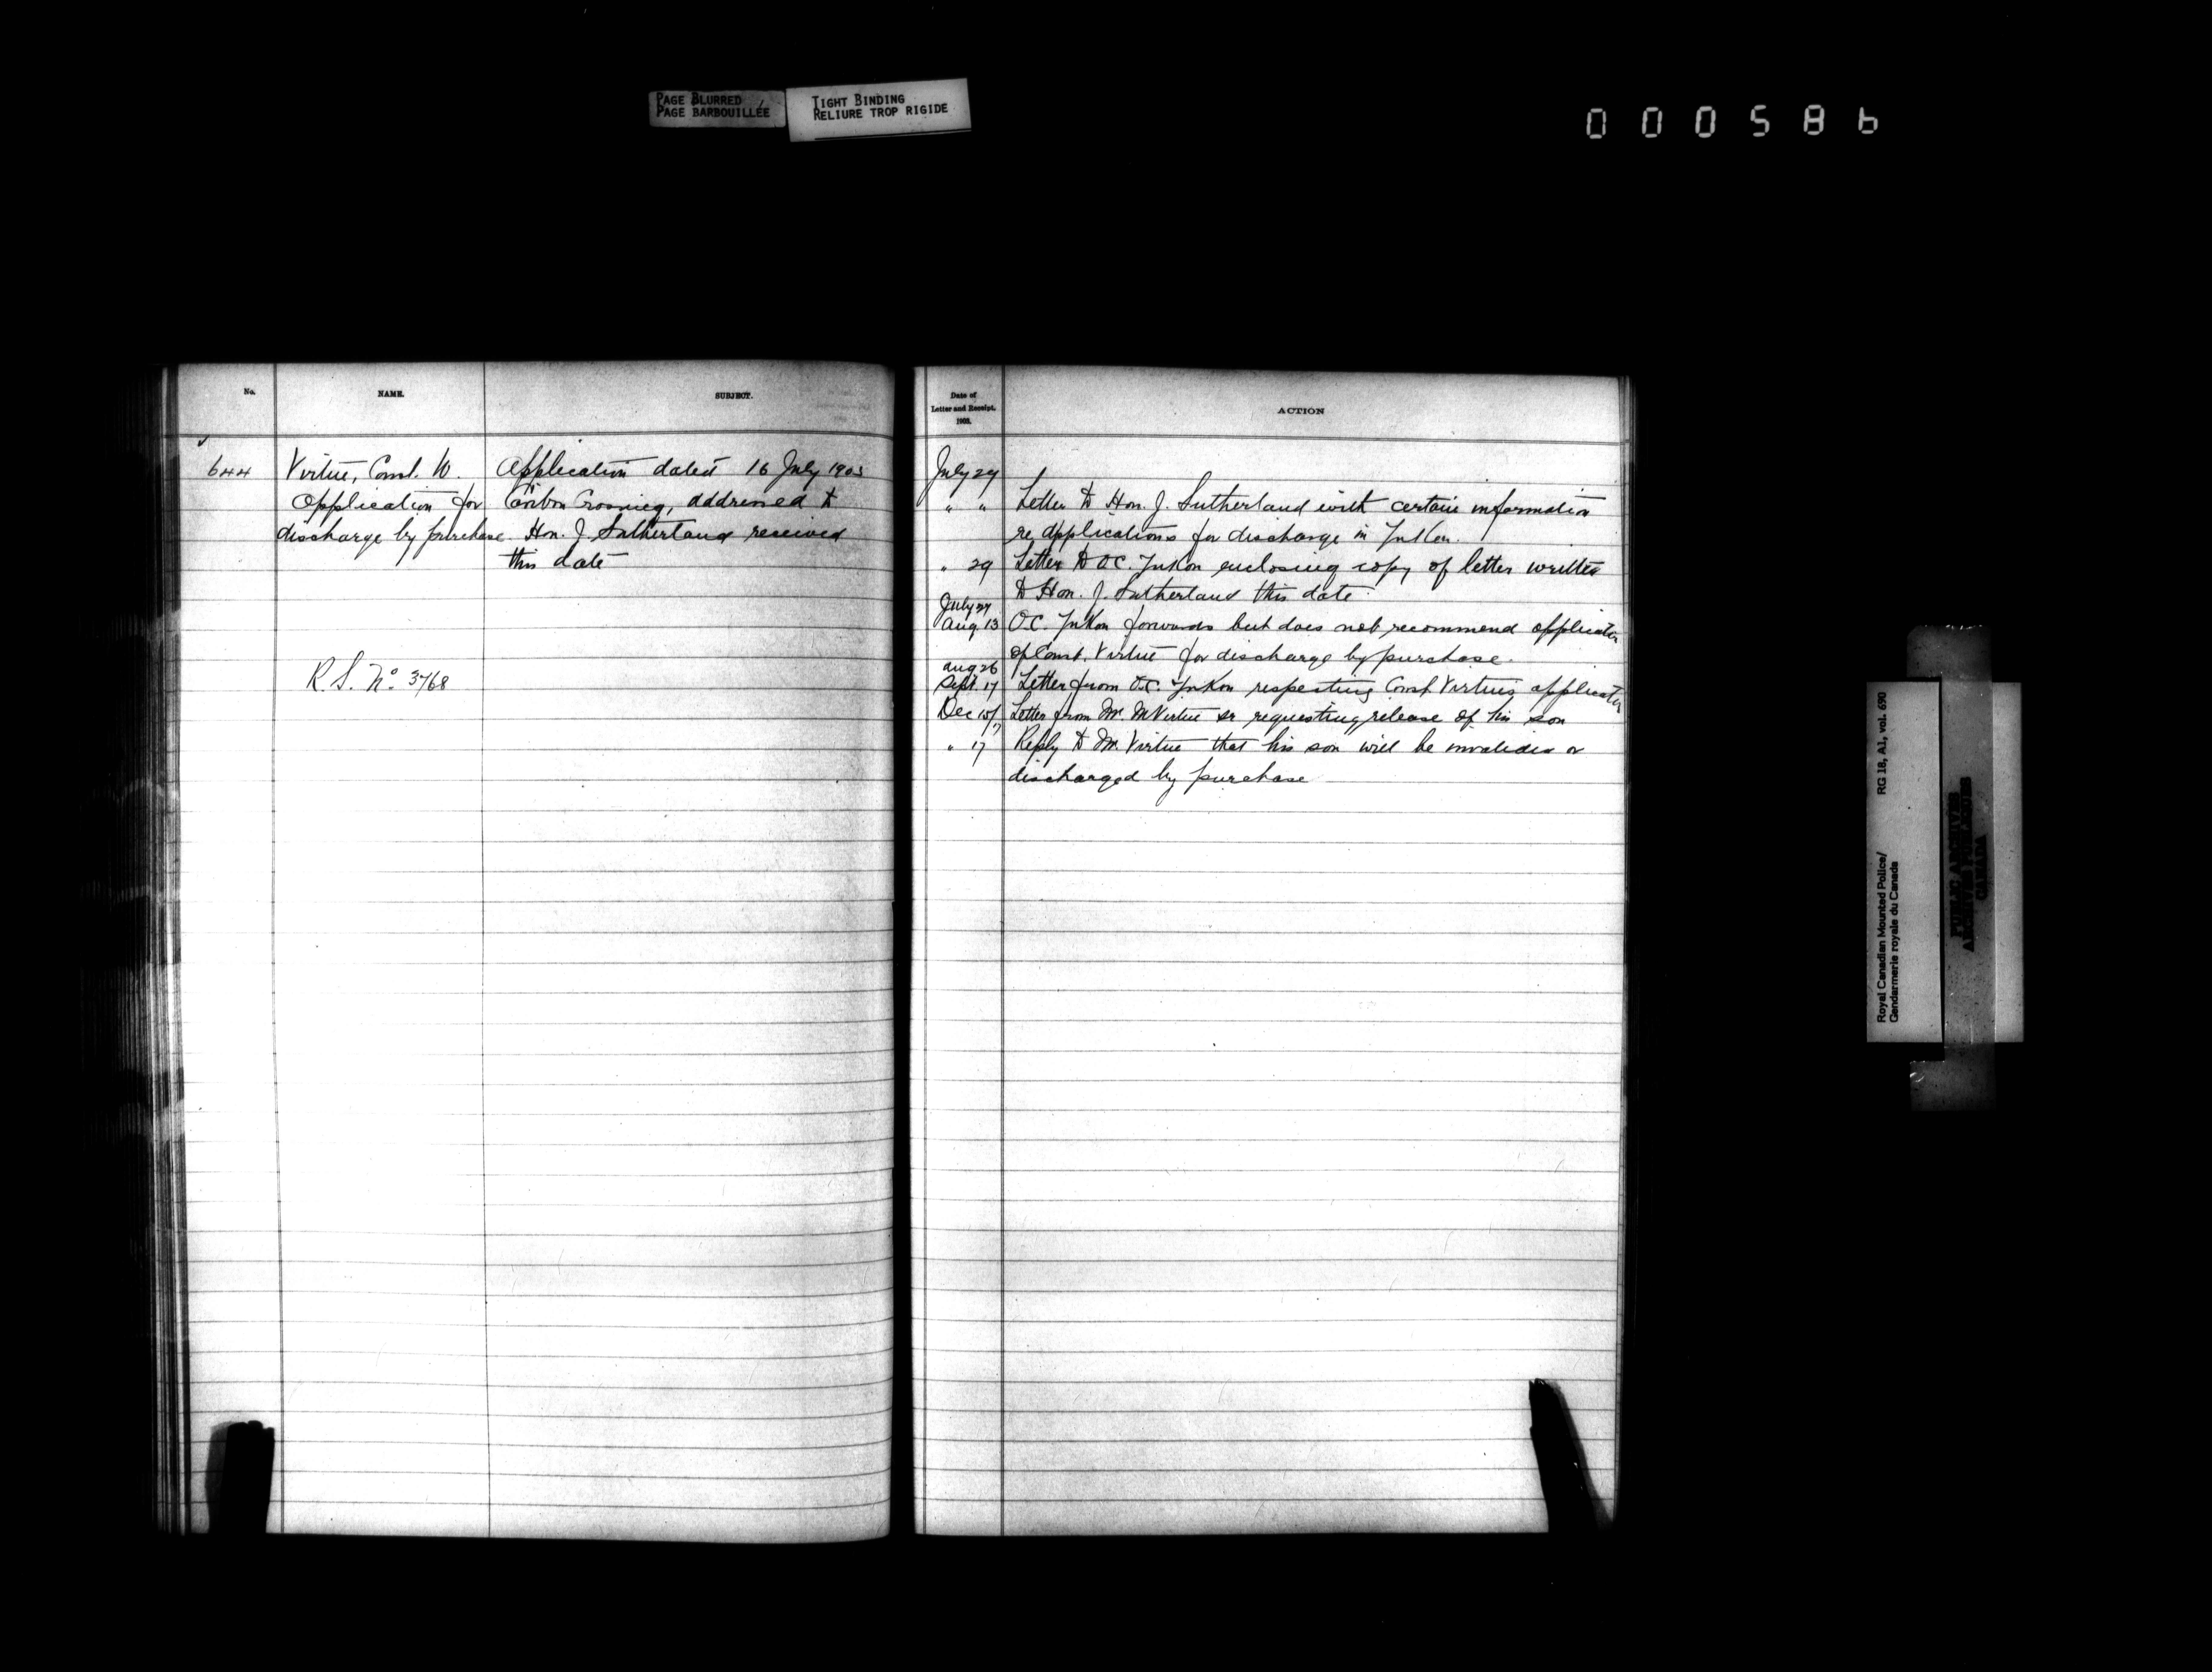 PAGE BLURRED
PAGE BARBOUILLÉE
TIGHT BINDING
RELIURE TROP RIGIDE
000586
No.
NAME.
SUBJECT.
644
Virtue, Const. W.
Application for
discharge by purchase.
R.S. No 3768
Application dated 16 July 1903
Caribou Crossing, addressed to
Hon. J. Sutherland received
this date
Date of
Letter and Receipt.
1903.
ACTION
July 29
" " Letter to Hon. J. Sutherland with certain information
re applications for discharge in Yukon.
" 29 Letter to O.C. Yukon enclosing copy of letter written
to Hon. J. Sutherland this date
July 27
Aug. 13 O.C. Yukon forwards but does not recommend application
of Const. Virtue for discharge by purchase.
Aug 26
Sept. 17 Letter from O.C. Yukon respecting Const Virtue's application
Dec 15/17 Letter from Mr. M Virtue sr requesting release of his son
" 17 Reply to Mr. Virtue that his son will be invalided or
discharged by purchase
Royal Canadian Mounted Police/
Gendarmerie royale du Canada
RG 18, A1, vol. 690
PUBLIC ARCHIVES
ARCHIVES PUBLIQUES
CANADA